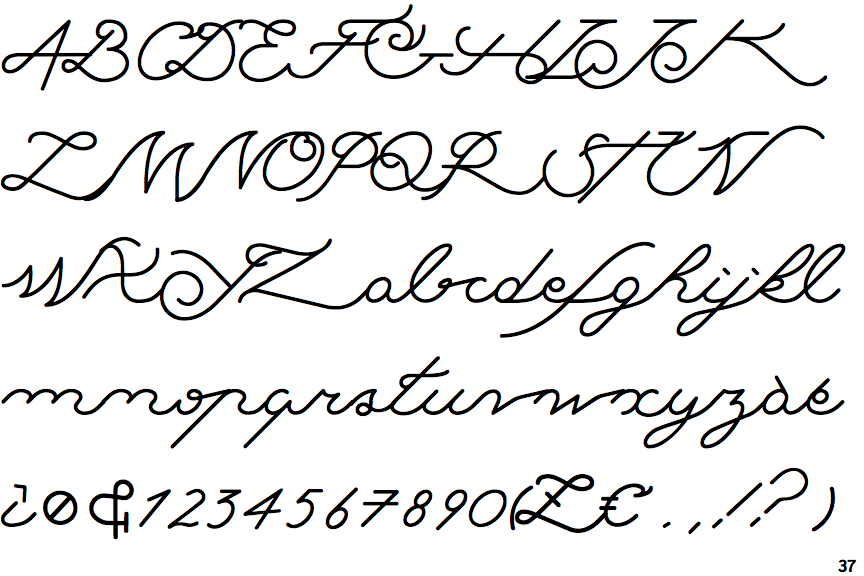 ABCDEFGHIJK
LMNOPQRSTUV
WXYZabcdefghijkl
mnopqrstuvwxyzàé
ø&1234567890(£€.,!?)
37